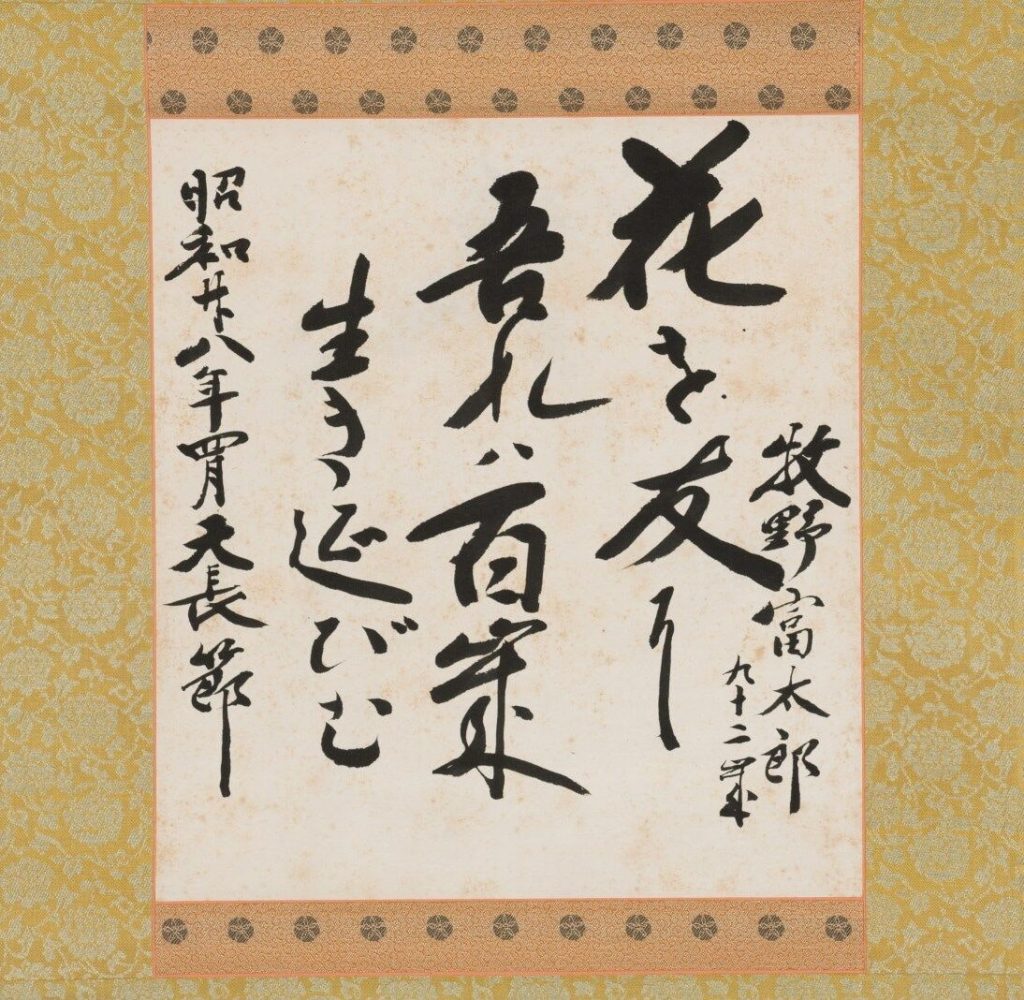 花を友に
吾れハ百歳
生き延びむ
昭和廿八年四月天長節
牧野富太郎
九十二歳